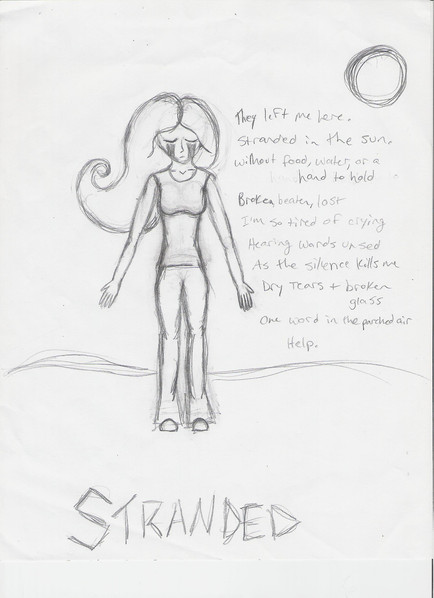 They left me here.
Stranded in the sun.
without food, water, or a
hand to hold
Broken beaten, lost
I'm so tired of crying
Hearing words unsed
As the silence kills me
Dry Tears + broken
glass
One word in the parched air
Help.
STRANDED